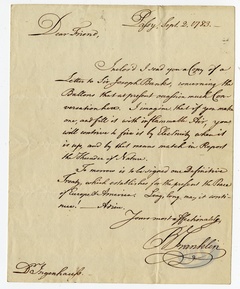 Passy, Sept. 2. 1783.
Dear Friend,
Inclos'd I send you a Copy of a
Letter to Sir Joseph Banks, concerning the
Ballons that at present occasion much Con-
versation here. I imagine that if you make
one, and fill it with inflammable Air, you
will contrive to fire it by Electricity when it
is up, and by that means match in Report
the Thunder of Nature.
To-morrow is to be signed our Definitive
Treaty, which establishes for the present the Peace
of Europe & America. Long, long, may it con-
tinue! — Adieu
Yours most affectionately,
B Franklin
Dr Ingenhausz